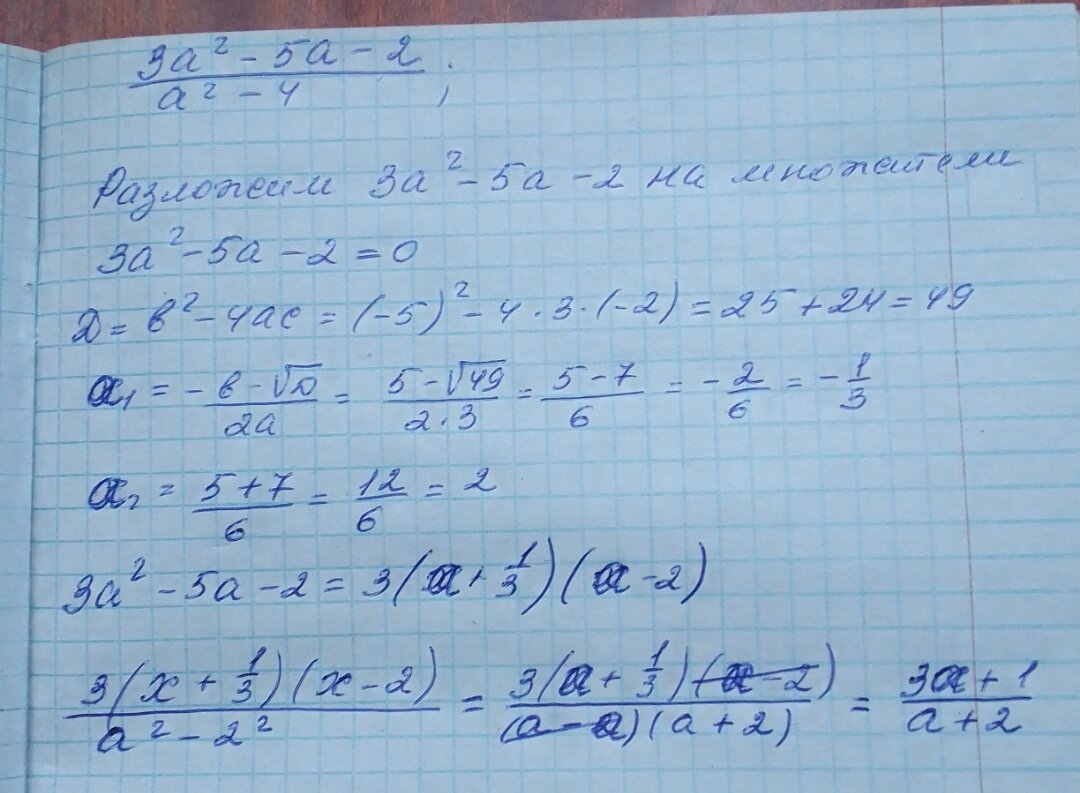 (3a² - 5a - 2)/(a² - 4);
Разложим 3a² - 5a - 2 на множители
3a² - 5a - 2 = 0
D = b² - 4ac = (-5)² - 4·3·(-2) = 25 + 24 = 49
a₁ = -(b - √D)/(2a) = (5 - √49)/(2·3) = (5 - 7)/6 = -2/6 = -1/3
a₂ = (5 + 7)/6 = 12/6 = 2
3a² - 5a - 2 = 3(a + 1/3)(a - 2)
(3(x + 1/3)(x - 2))/(a² - 2²) = (3(a + 1/3)(a - 2))/((a - a)(a + 2)) = (3a + 1)/(a + 2)